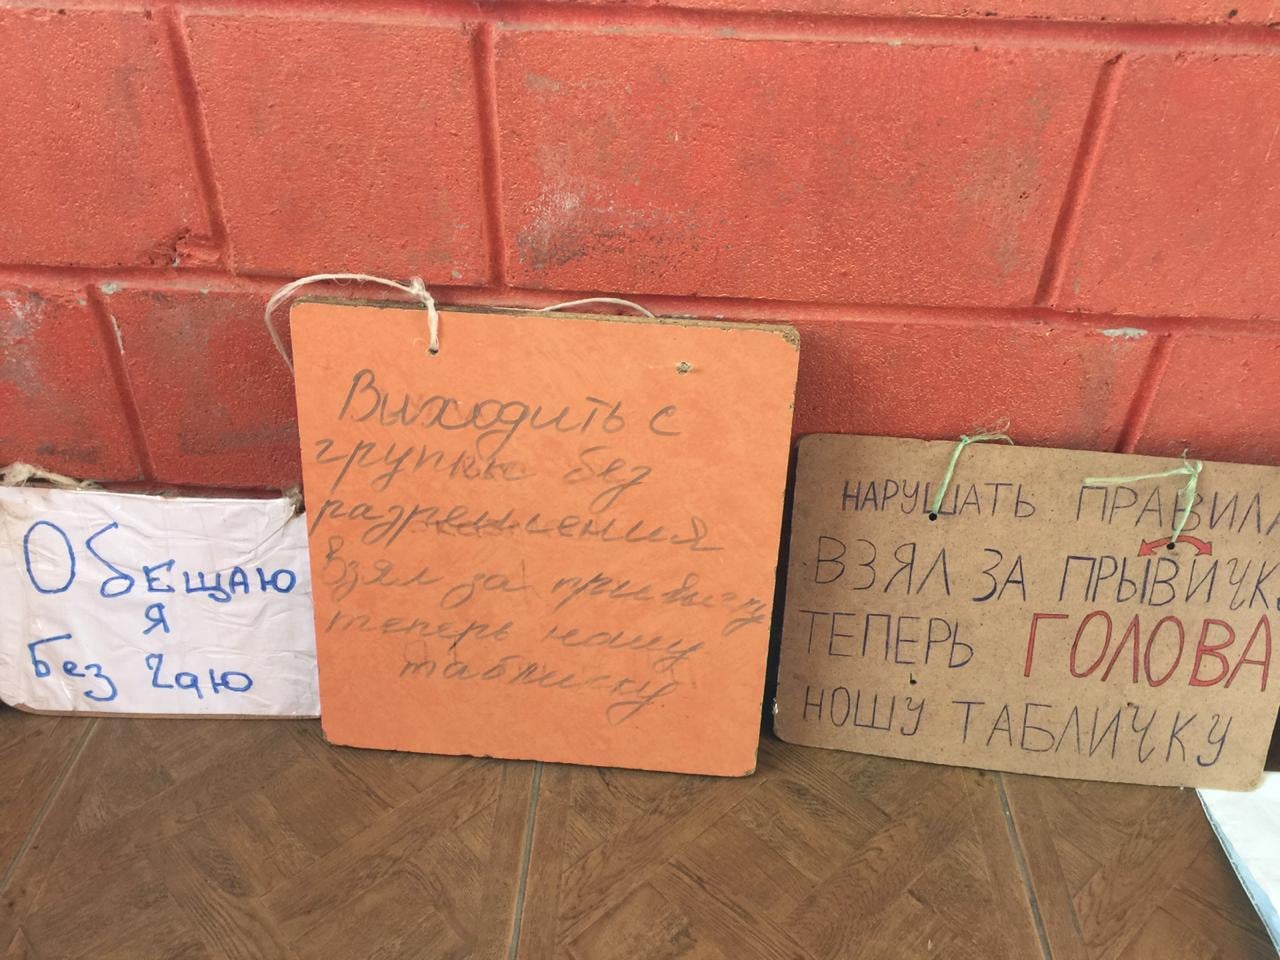 Обещаю
я
без чаю
Выходить с
групы без
разрешения
взял за привычку
теперь ношу
табличку
НАРУШАТЬ ПРАВИЛА
ВЗЯЛ ЗА ПРЫВИЧК
ТЕПЕРЬ ГОЛОВА
НОШУ ТАБЛИЧКУ